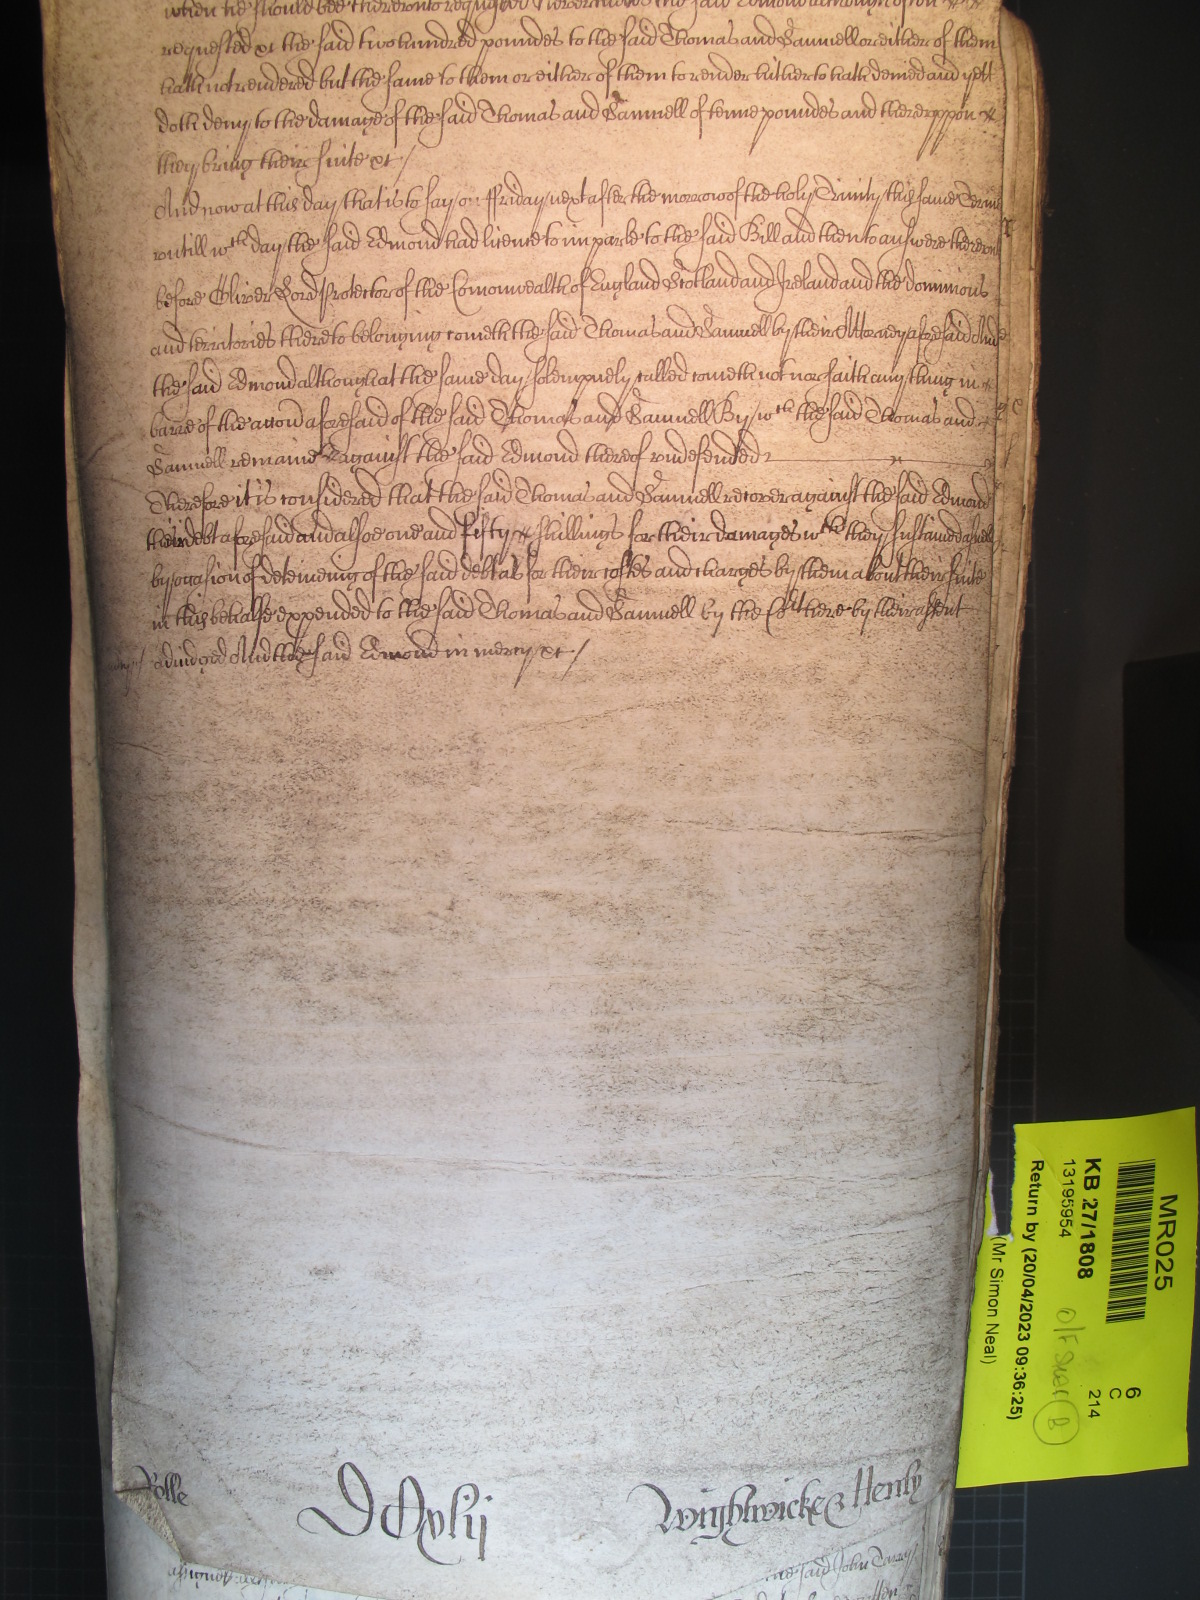 when he should bee thereunto requested Neverthelesse the said Edmond although often
requested &c the said two hundred poundes to the said Thomas and Samuell or either of them
hath not rendered but the same to them or either of them to render hitherto hath denied and yett
doth deny to the damage of the said Thomas and Samuell of tenne poundes and thereuppon
they bring their suite &c
And now at this day that is to say on Ffriday next after the morrow of the holy Trinity this same Terme
untill wch day the said Edmond had licence to imparle to the said Bill and then to answere thereunto
before Oliver Lord Protector of the Comonwealth of England Scotland and Ireland and the dominions
and territories thereto belonging cometh the said Thomas and Samuell by their Attorney aforesaid And
the said Edmond although at the same day solempnely called cometh not nor saith any thing in
barre of the accon aforesaid of the said Thomas and Samuell By wch the said Thomas and
Samuell remaine against the said Edmond thereof undefended
Therefore it is considered that the said Thomas and Samuell recover against the said Edmond
their debt aforesaid and alsoe one and fifty shillings for their damages wch they sustained aswell
by occasion of deteineing of the said debt as for their costes and charges by them about their suite
in this behalfe expended to the said Thomas and Samuell by the Court here by their assent
adiudged And the said Edmond in mercy &c
Rolle
Wightwicke & Henly
the said John
MR025
KB 27/1808
13195954
6
C
214
Return by (20/04/2023 09:36:25)
(Mr Simon Neal)
B